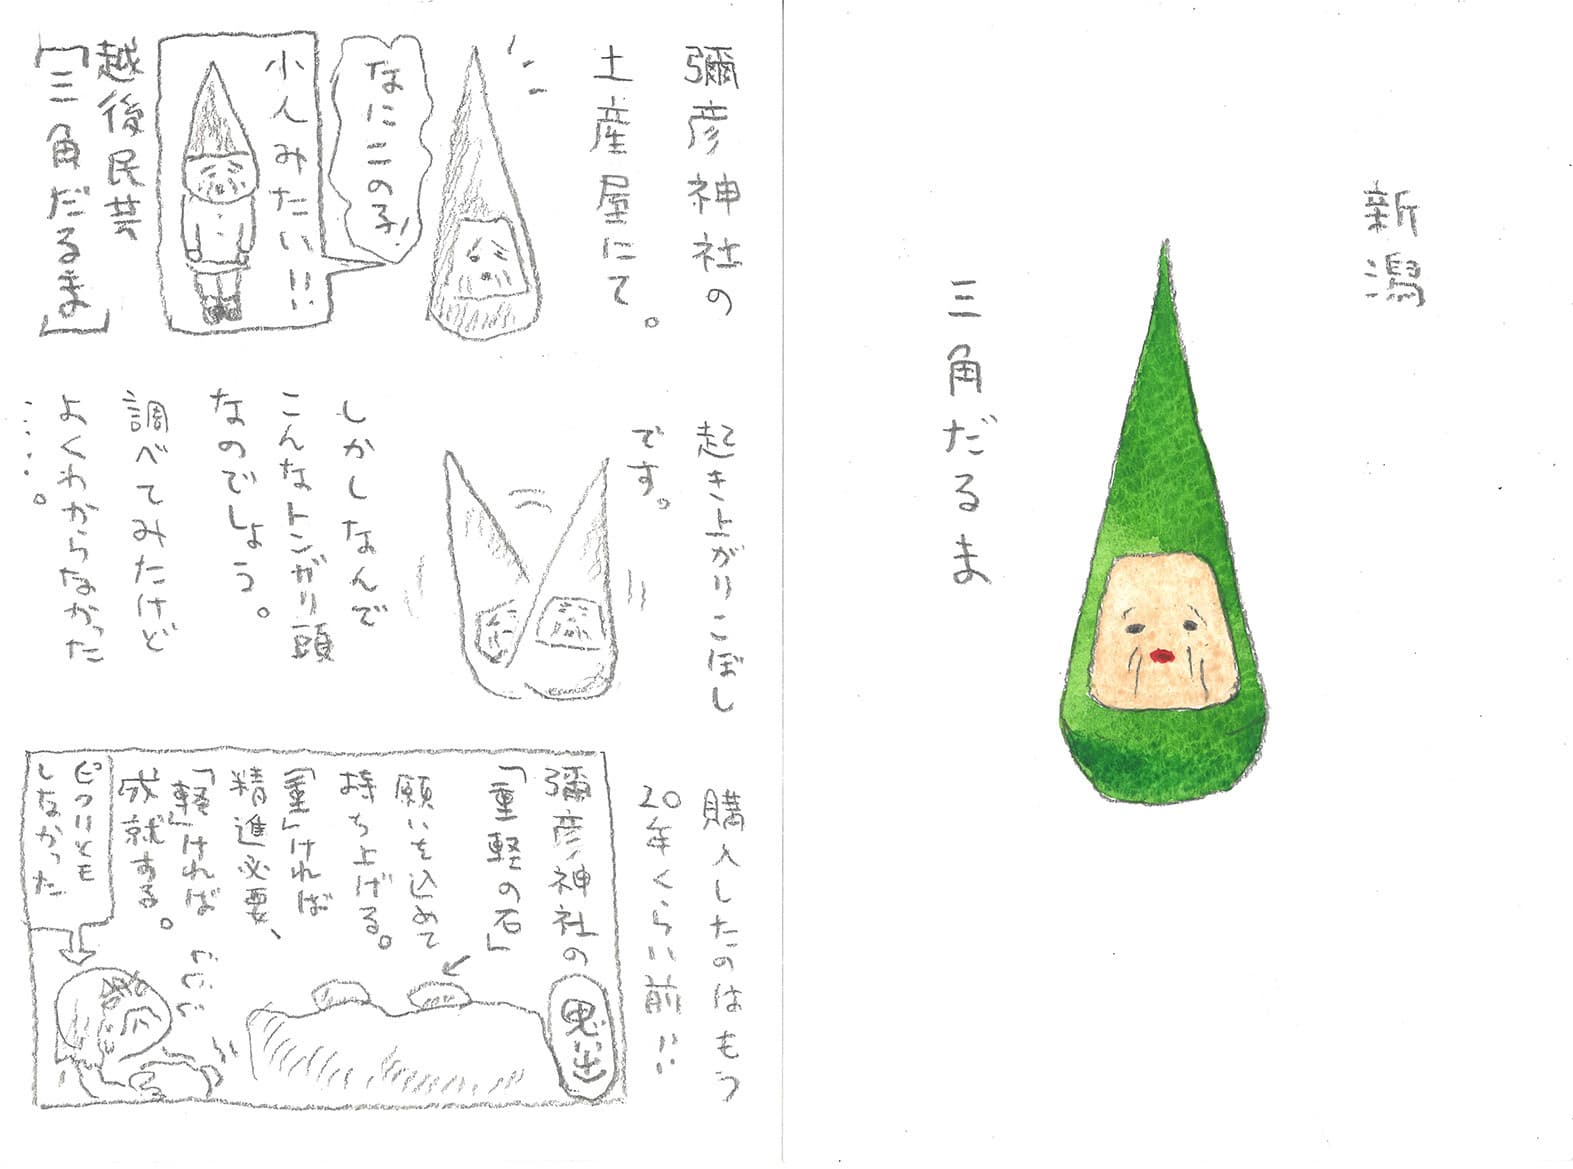 新潟
三角だるま
彌彦神社の
土産屋にて。
なにこの子!
小人みたい!!
越後民芸
「三角だるま」
起き上がりこぼし
です。
しかしなんで
こんなトンガリ頭
なのでしょう。
調べてみたけど
よくわからなかった
……。
購入したのはもう
20年くらい前!!
思い出
彌彦神社の
「重軽の石」
願いを込めて
持ち上げる。
「重」ければ
精進必要、
「軽」ければ
成就する。
ピクリとも
しなかった